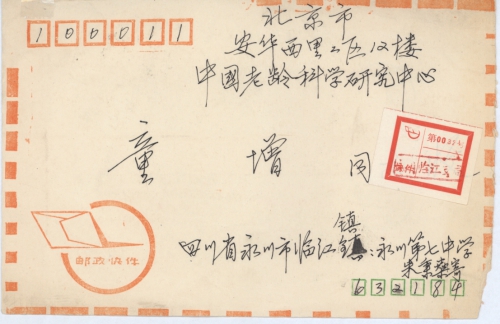 100011
北京市
安华西里二区12楼
中国老龄科学研究中心
童增同
第00
临江
邮政快件
镇
四川省永川市临江镇:永川第七中学
朱秉棻寄
632184